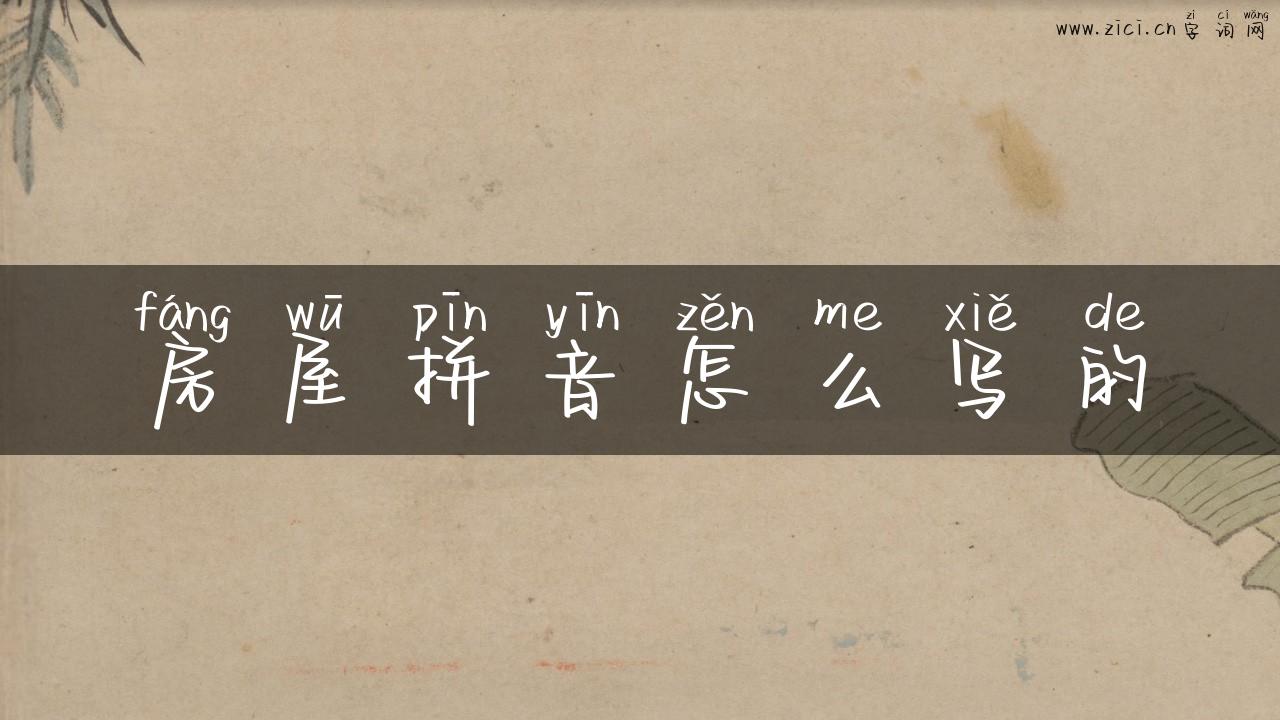 zì cí wǎng
www.zici.cn 字词网
fáng wū pīn yīn zěn me xiě de
房屋拼音怎么写的